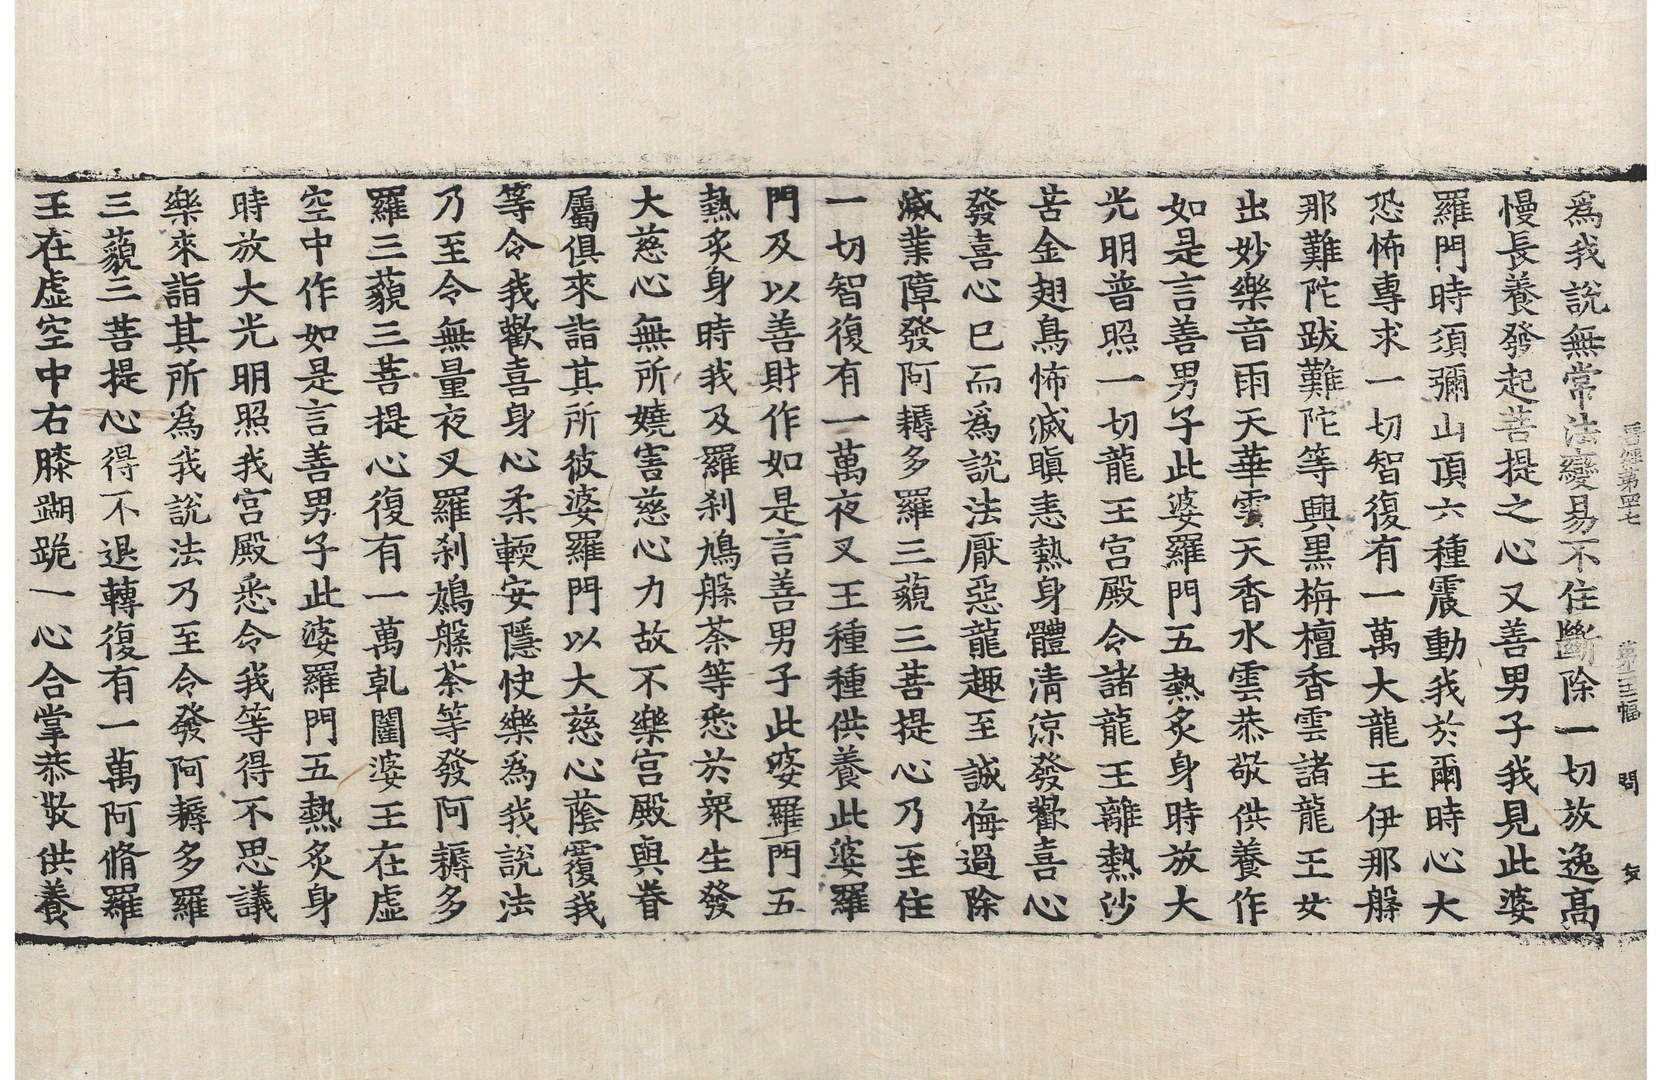 晋經第四十七 第十二幅 問
爲我說無常法變易不住斷除一切放逸高
慢長養發起菩提之心又善男子我見此婆
羅門時須彌山頂六種震動我於爾時心大
恐怖專求一切智復有一萬大龍王伊那槃
那難陀跋難陀等興黑栴檀香雲諸龍王女
出妙樂音雨天華雲天香水雲恭敬供養作
如是言善男子此婆羅門五熱炙身時放大
光明普照一切龍王宮殿令諸龍王離熱沙
苦金翅鳥怖滅瞋恚熱身體清涼發歡喜心
發喜心已而爲說法厭惡龍趣至誠悔過除
滅業障發阿耨多羅三藐三菩提心乃至住
一切智復有一萬夜叉王種種供養此婆羅
門及以善財作如是言善男子此婆羅門五
熱炙身時我及羅刹鳩槃荼等悉於衆生發
大慈心無所嬈害慈心力故不樂宮殿與眷
屬俱來詣其所彼婆羅門以大慈心蔭覆我
等令我歡喜身心柔輭安隱快樂爲我說法
乃至令無量夜叉羅刹鳩槃荼等發阿耨多
羅三藐三菩提心復有一萬乹闥婆王在虛
空中作如是言善男子此婆羅門五熱炙身
時放大光明照我宮殿悉令我等得不思議
樂來詣其所爲我說法乃至令發阿耨多羅
三藐三菩提心得不退轉復有一萬阿脩羅
王在虛空中右膝䠒跪一心合掌恭敬供養